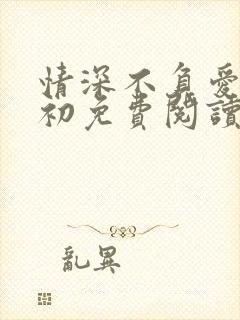 情深不負愛
初免費閱讀
亂異